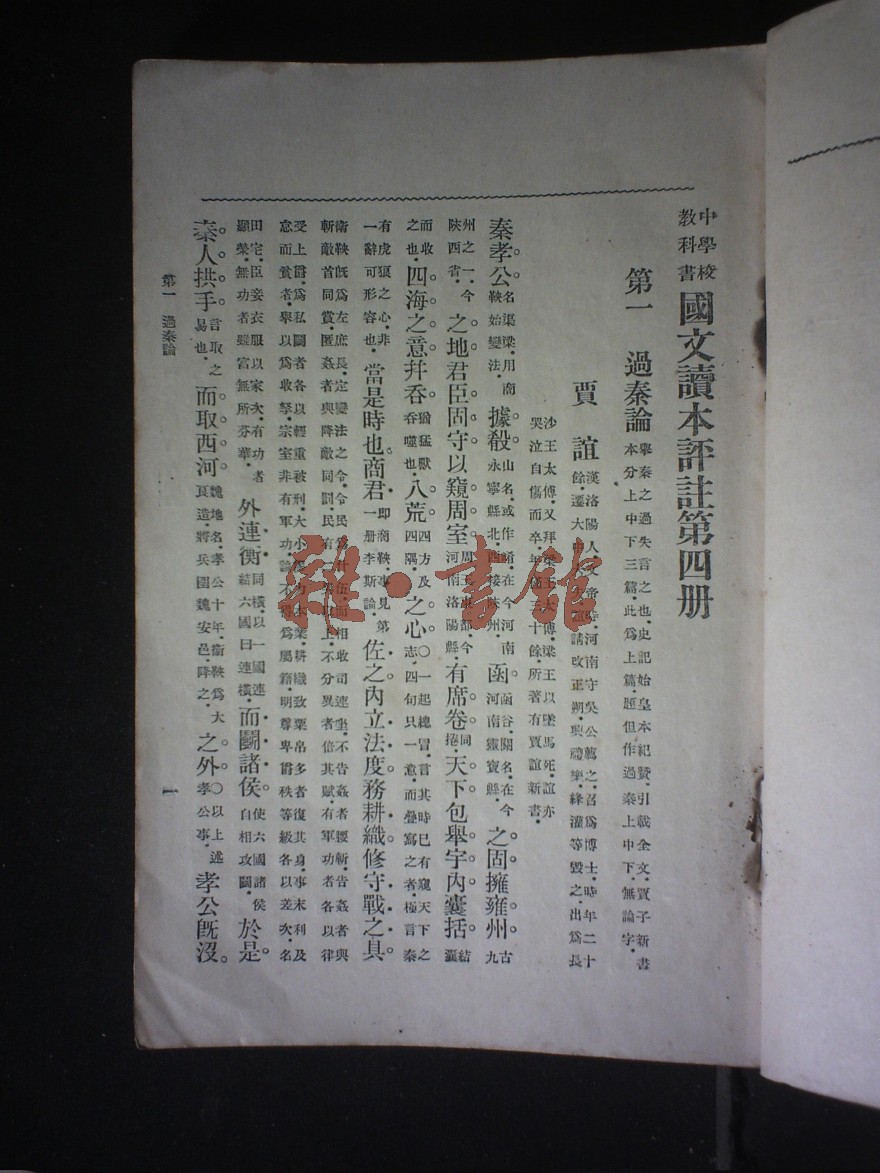 中學校
教科書 國文讀本評註第四册
第一 過秦論 舉秦之過失言之也.史記始皇本紀贊.引載全文.賈子新書
本分上中下三篇.此爲上篇.題但作過秦上中下.無論字.
賈誼 漢洛陽人.文帝時.河南守吳公薦之.召爲博士.時年二十
餘.遷大中大夫.誼請改正朔.興禮樂.絳灌等毀之.出爲長
沙王太傅.又拜梁王太傅.梁王以墜馬死.誼亦
哭泣自傷而卒.年僅三十餘.所著有賈誼新書.
秦孝公 名渠梁.用商鞅始變法. 據殽 山名.或作崤.在今河南永寧縣北.西接陝州. 函 函谷.關名.在今河南靈寶縣. 之固.擁雍州 古九
州之一.今陝西省. 之地.君臣固守.以窺周室 周王東都.今河南洛陽縣. 有席卷 同捲. 天下.包舉宇內.囊括 結囊
而收之也. 四海之意.幷吞 猶猛獸吞噬也. 八荒 四方及四隅. 之心 〇一起總冒.言其時已有窺天下之志.四句只一意.而疊寫之者.極言秦
有虎狼之心.非一辭可形容也. 當是時也.商君 即商鞅.事見第一册李斯論. 佐之.內立法度.務耕織.修守戰之具.
衛鞅旣爲左庶長.定變法之令.令民爲什伍.而相收司連坐.不告姦者腰斬.告姦者與
斬敵首同賞.匿姦者與降敵同罰.民有二男以上.不分異者倍其賦.有軍功者各以律
受上爵.爲私鬭者各以輕重被刑.大小僇力本業.耕織致粟帛多者復其身.事末利及
怠而貧者.舉以爲收孥.宗室非有軍功.論不得爲屬籍.明尊卑爵秩等級各以差次.名
田宅.臣妾衣服以家次.有功者
顯榮.無功者雖富無所芬華. 外連衡 同橫.以一國連結六國曰連橫. 而鬭諸侯 使六國諸侯自相攻鬭. 於是
秦人拱手 言取之易也. 而取西河 魏地名.孝公十年.衛鞅爲大良造.將兵圍魏安邑.降之. 之外 〇以上述孝公事. 孝公旣沒.
第一 過秦論
一
雜·書館